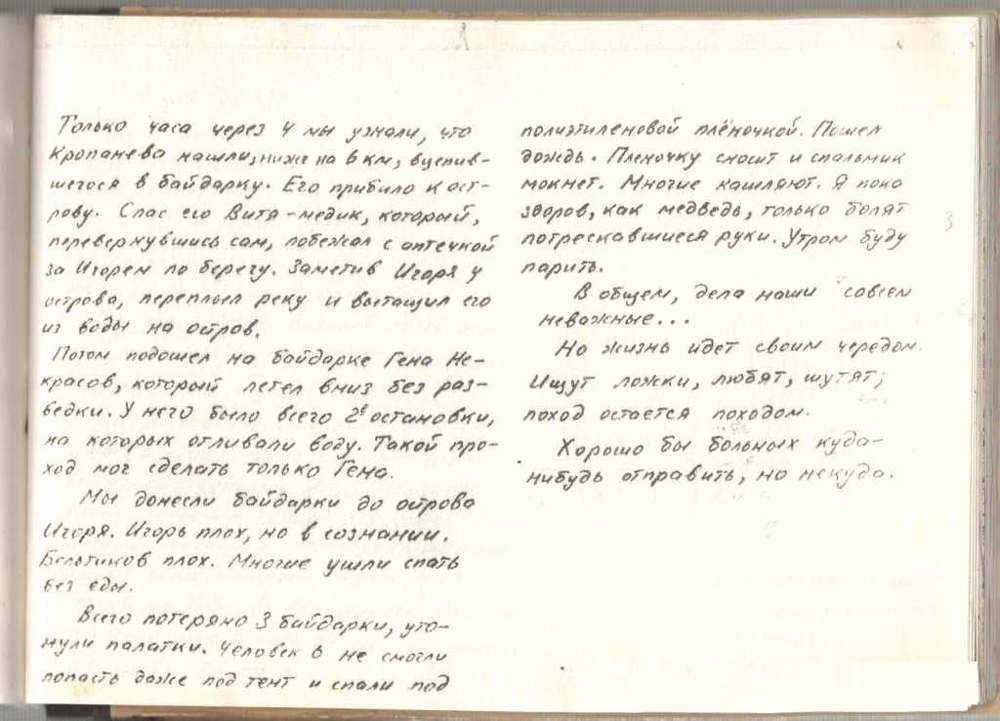 Только часа через 4 мы узнали, что
Кропанева нашли, ниже на 6 км, вцепив-
шегося в байдарку. Его прибило к ост-
рову. Спас его Витя-медик, который,
перевернувшись сам, побежал с аптечкой
за Игорем по берегу. Заметив Игоря у
острова, переплыл реку и вытащил его
из воды на остров.
Потом подошел на байдарке Гена Не-
красов, который летел вниз без раз-
ведки. У него было всего 2 остановки,
на которых отливали воду. Такой про-
ход мог сделать только Гена.
Мы донесли байдарки до острова
Игоря. Игорь плох, но в сознании.
Бельтиков плох. Многие ушли спать
без еды.
Всего потеряно 3 байдарки, уто-
нули палатки. Человек 6 не смогли
попасть даже под тент и спали под
полиэтиленовой плёночкой. Пошел
дождь. Пленочку сносит и спальник
мокнет. Многие кашляют. Я пока
здоров, как медведь, только болят
потрескавшиеся руки. Утром буду
парить.
В общем, дела наши совсем
неважные...
Но жизнь идет своим чередом.
Ищут ложки, любят, шутят;
поход остается походом.
Хорошо бы больных куда-
нибудь отправить, но некуда.
3